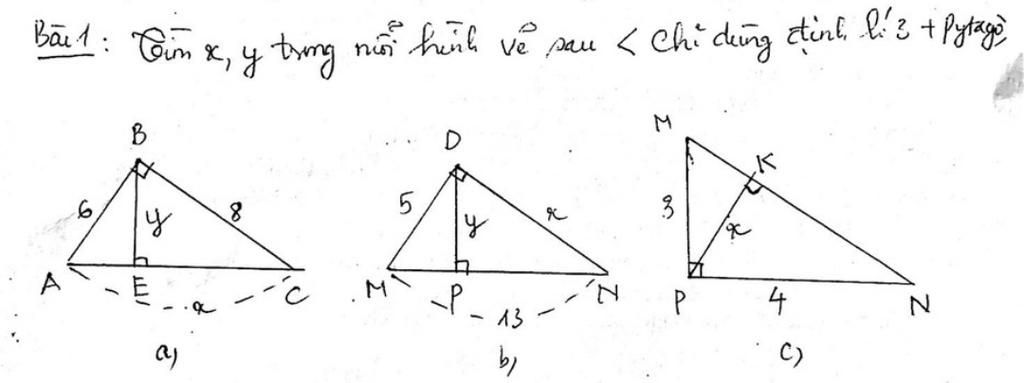 Bài 1: Tìm x, y trong mỗi hình vẽ sau < Chỉ dùng định lí 3 + Pytago
B
D
M
K
6
y
8
5
y
x
3
x
A
E
x
C
M
P
13
N
P
4
N
a,
b,
c)